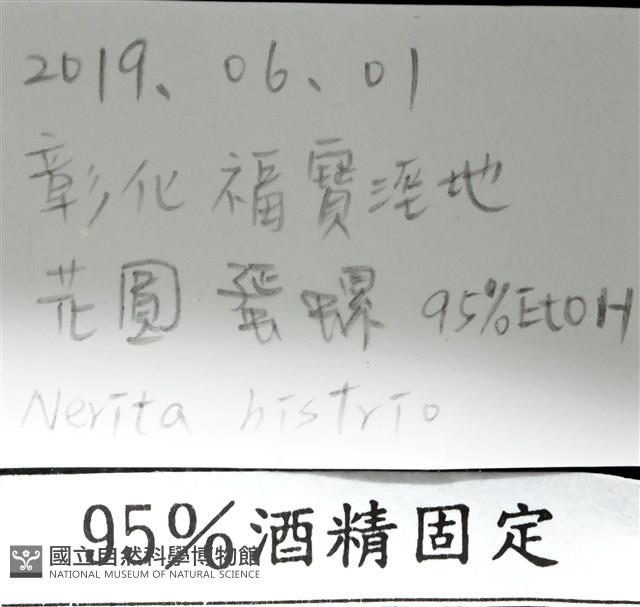 2019、06、01
彰化 福寶溼地
花圓 蜑螺 95%EtOH
Nerita histrio
95%酒精固定
國立自然科學博物館
NATIONAL MUSEUM OF NATURAL SCIENCE